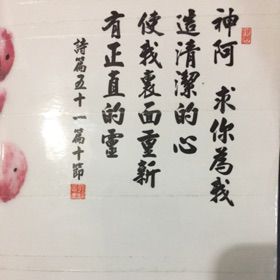 神阿 求你為我
造清潔的心
使我裏面重新
有正直的靈
詩篇五十一篇十節